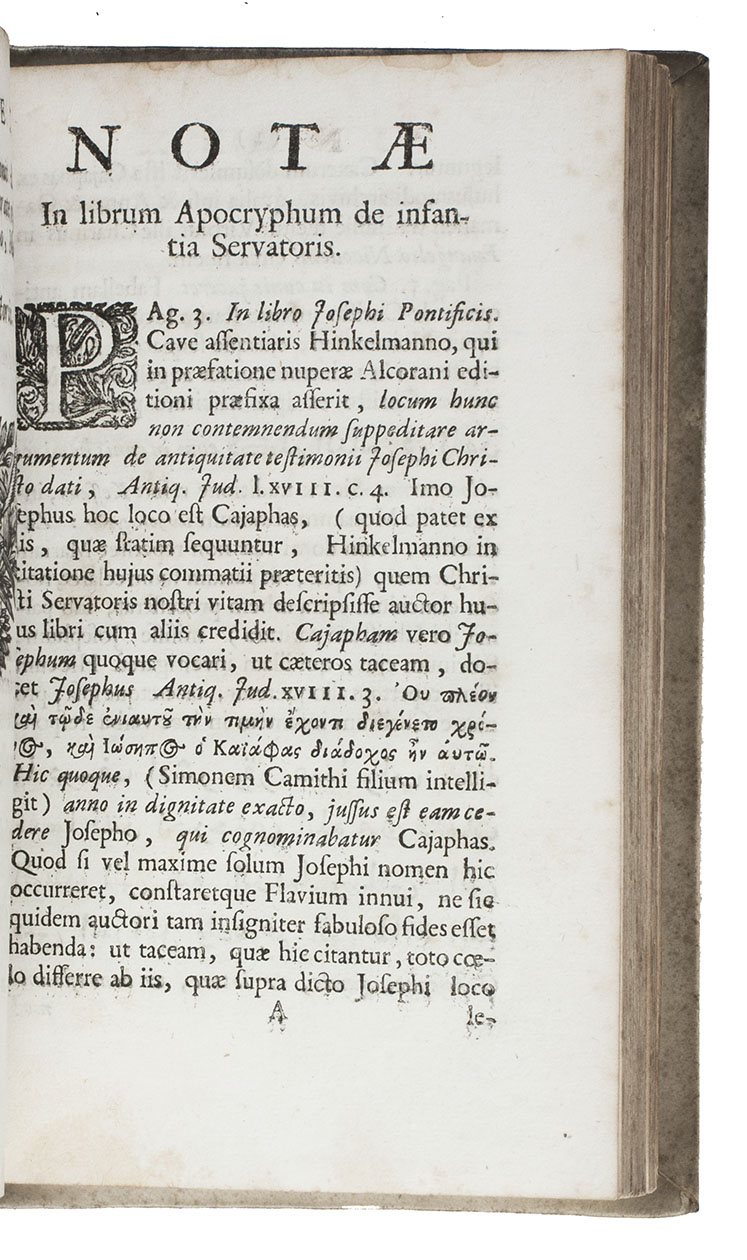 NOTÆ
In librum Apocryphum de infan-
tia Servatoris.
PAg. 3. In libro Joſephi Pontificis.
Cave aſſentiaris Hinkelmanno, qui
in præfatione nuperæ Alcorani edi-
tioni præfixa aſſerit, locum hunc
non contemnendum ſuppeditare ar-
gumentum de antiquitate teſtimonii Joſephi Chri-
ſto dati, Antiq. Jud. l. XVIII. c. 4. Imo Jo-
ſephus hoc loco eſt Cajaphas, (quod patet ex
iis, quæ ſtatim ſequuntur, Hinkelmanno in
citatione hujus commatii præteritis) quem Chri-
ſti Servatoris noſtri vitam deſcripſiſſe auctor hu-
us libri cum aliis credidit. Cajapham vero Jo-
ſephum quoque vocari, ut cæteros taceam, do-
cet Joſephus Antiq. Jud. XVIII. 3. Ὀυ πλέον
καὶ τῷδε ἐνιαυτοῦ τὴν τιμὴν ἔχοντι διεγένετο χρό-
νος, καὶ Ἰώσηπος ὁ Καϊάφας διάδοχος ἦν αυτῷ.
Hic quoque, (Simonem Camithi filium intelli-
git) anno in dignitate exacto, juſſus eſt eam ce-
dere Joſepho, qui cognominabatur Cajaphas.
Quod ſi vel maxime ſolum Joſephi nomen hic
occurreret, conſtaretque Flavium innui, ne ſic
quidem auctori tam inſigniter fabuloſo fides eſſet
habenda: ut taceam, quæ hic citantur, toto cœ-
lo differre ab iis, quæ ſupra dicto Joſephi loco
A
le-